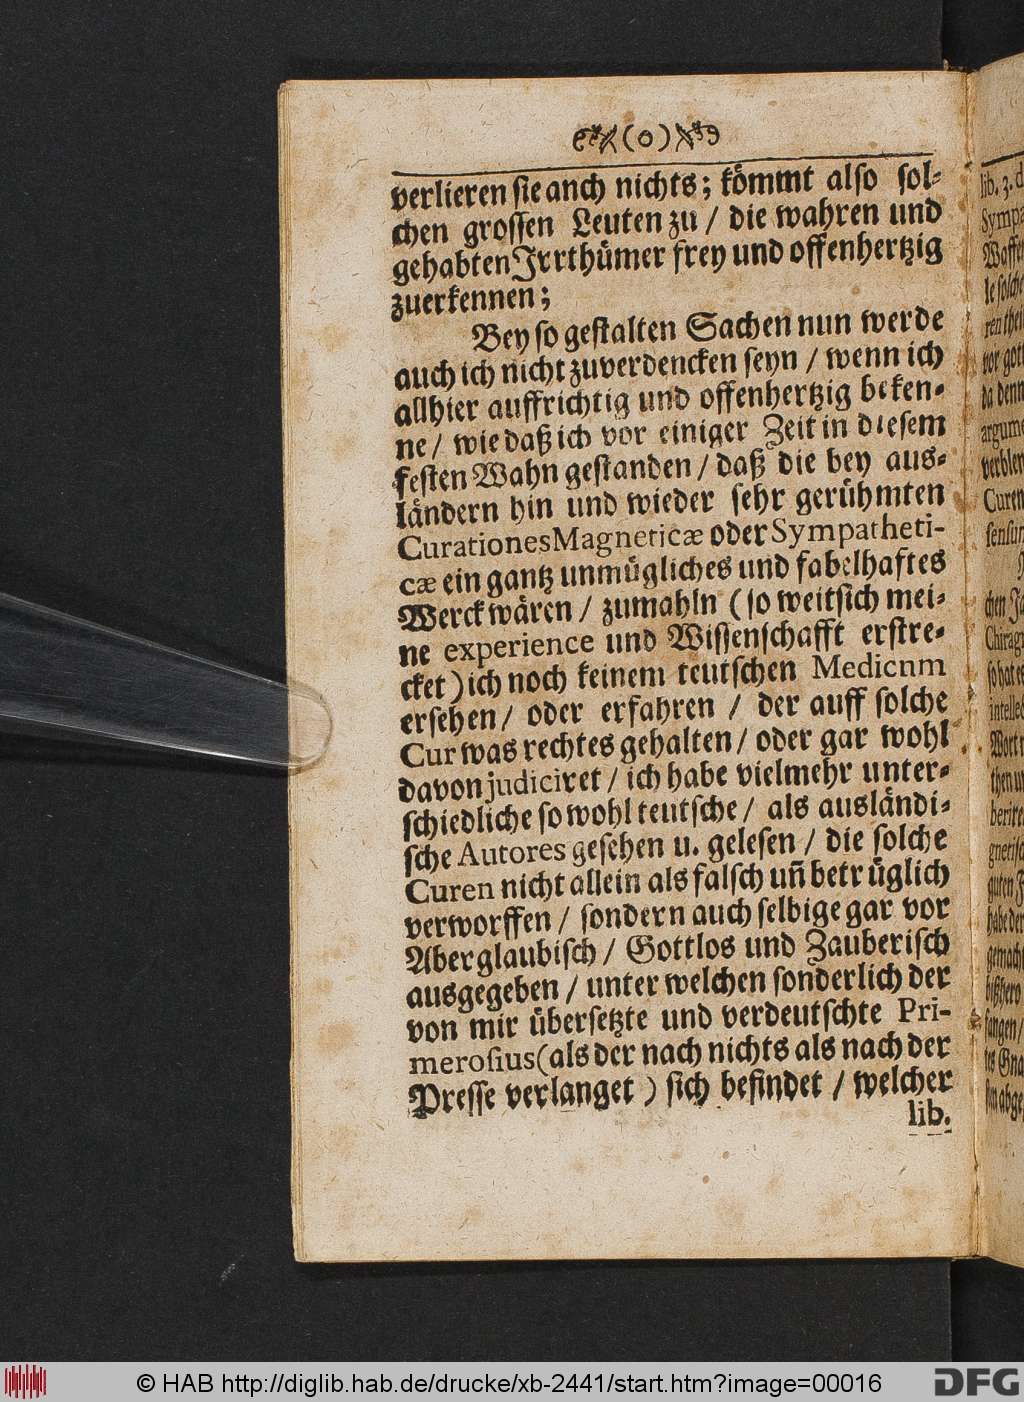 (o)
verlieren sie anch nichts; kömmt also sol-
chen grossen Leuten zu / die wahren und
gehabten Irrthümer frey und offenhertzig
zuerkennen;
Bey so gestalten Sachen nun werde
auch ich nicht zuverdencken seyn / wenn ich
allhier auffrichtig und offenhertzig beken-
ne / wie daß ich vor einiger Zeit in diesem
festen Wahn gestanden / daß die bey aus-
ländern hin und wieder sehr gerühmten
Curationes Magneticæ oder Sympatheti-
cæ ein gantz unmügliches und fabelhaftes
Werck wären / zumahln (so weit sich mei-
ne experience und Wissenschafft erstre-
cket) ich noch keinem teutschen Medicnm
ersehen / oder erfahren / der auff solche
Cur was rechtes gehalten / oder gar wohl
davon judiciret / ich habe vielmehr unter-
schiedliche so wohl teutsche / als ausländi-
sche Autores gesehen u. gelesen / die solche
Curen nicht allein als falsch uñ betrüglich
verworffen / sondern auch selbige gar vor
Aberglaubisch / Gottlos und Zauberisch
ausgegeben / unter welchen sonderlich der
von mir übersetzte und verdeutschte Pri-
merosius (als der nach nichts als nach der
Presse verlanget) sich befindet / welcher
lib.
lib. 3. d
© HAB http://diglib.hab.de/drucke/xb-2441/start.htm?image=00016
DFG